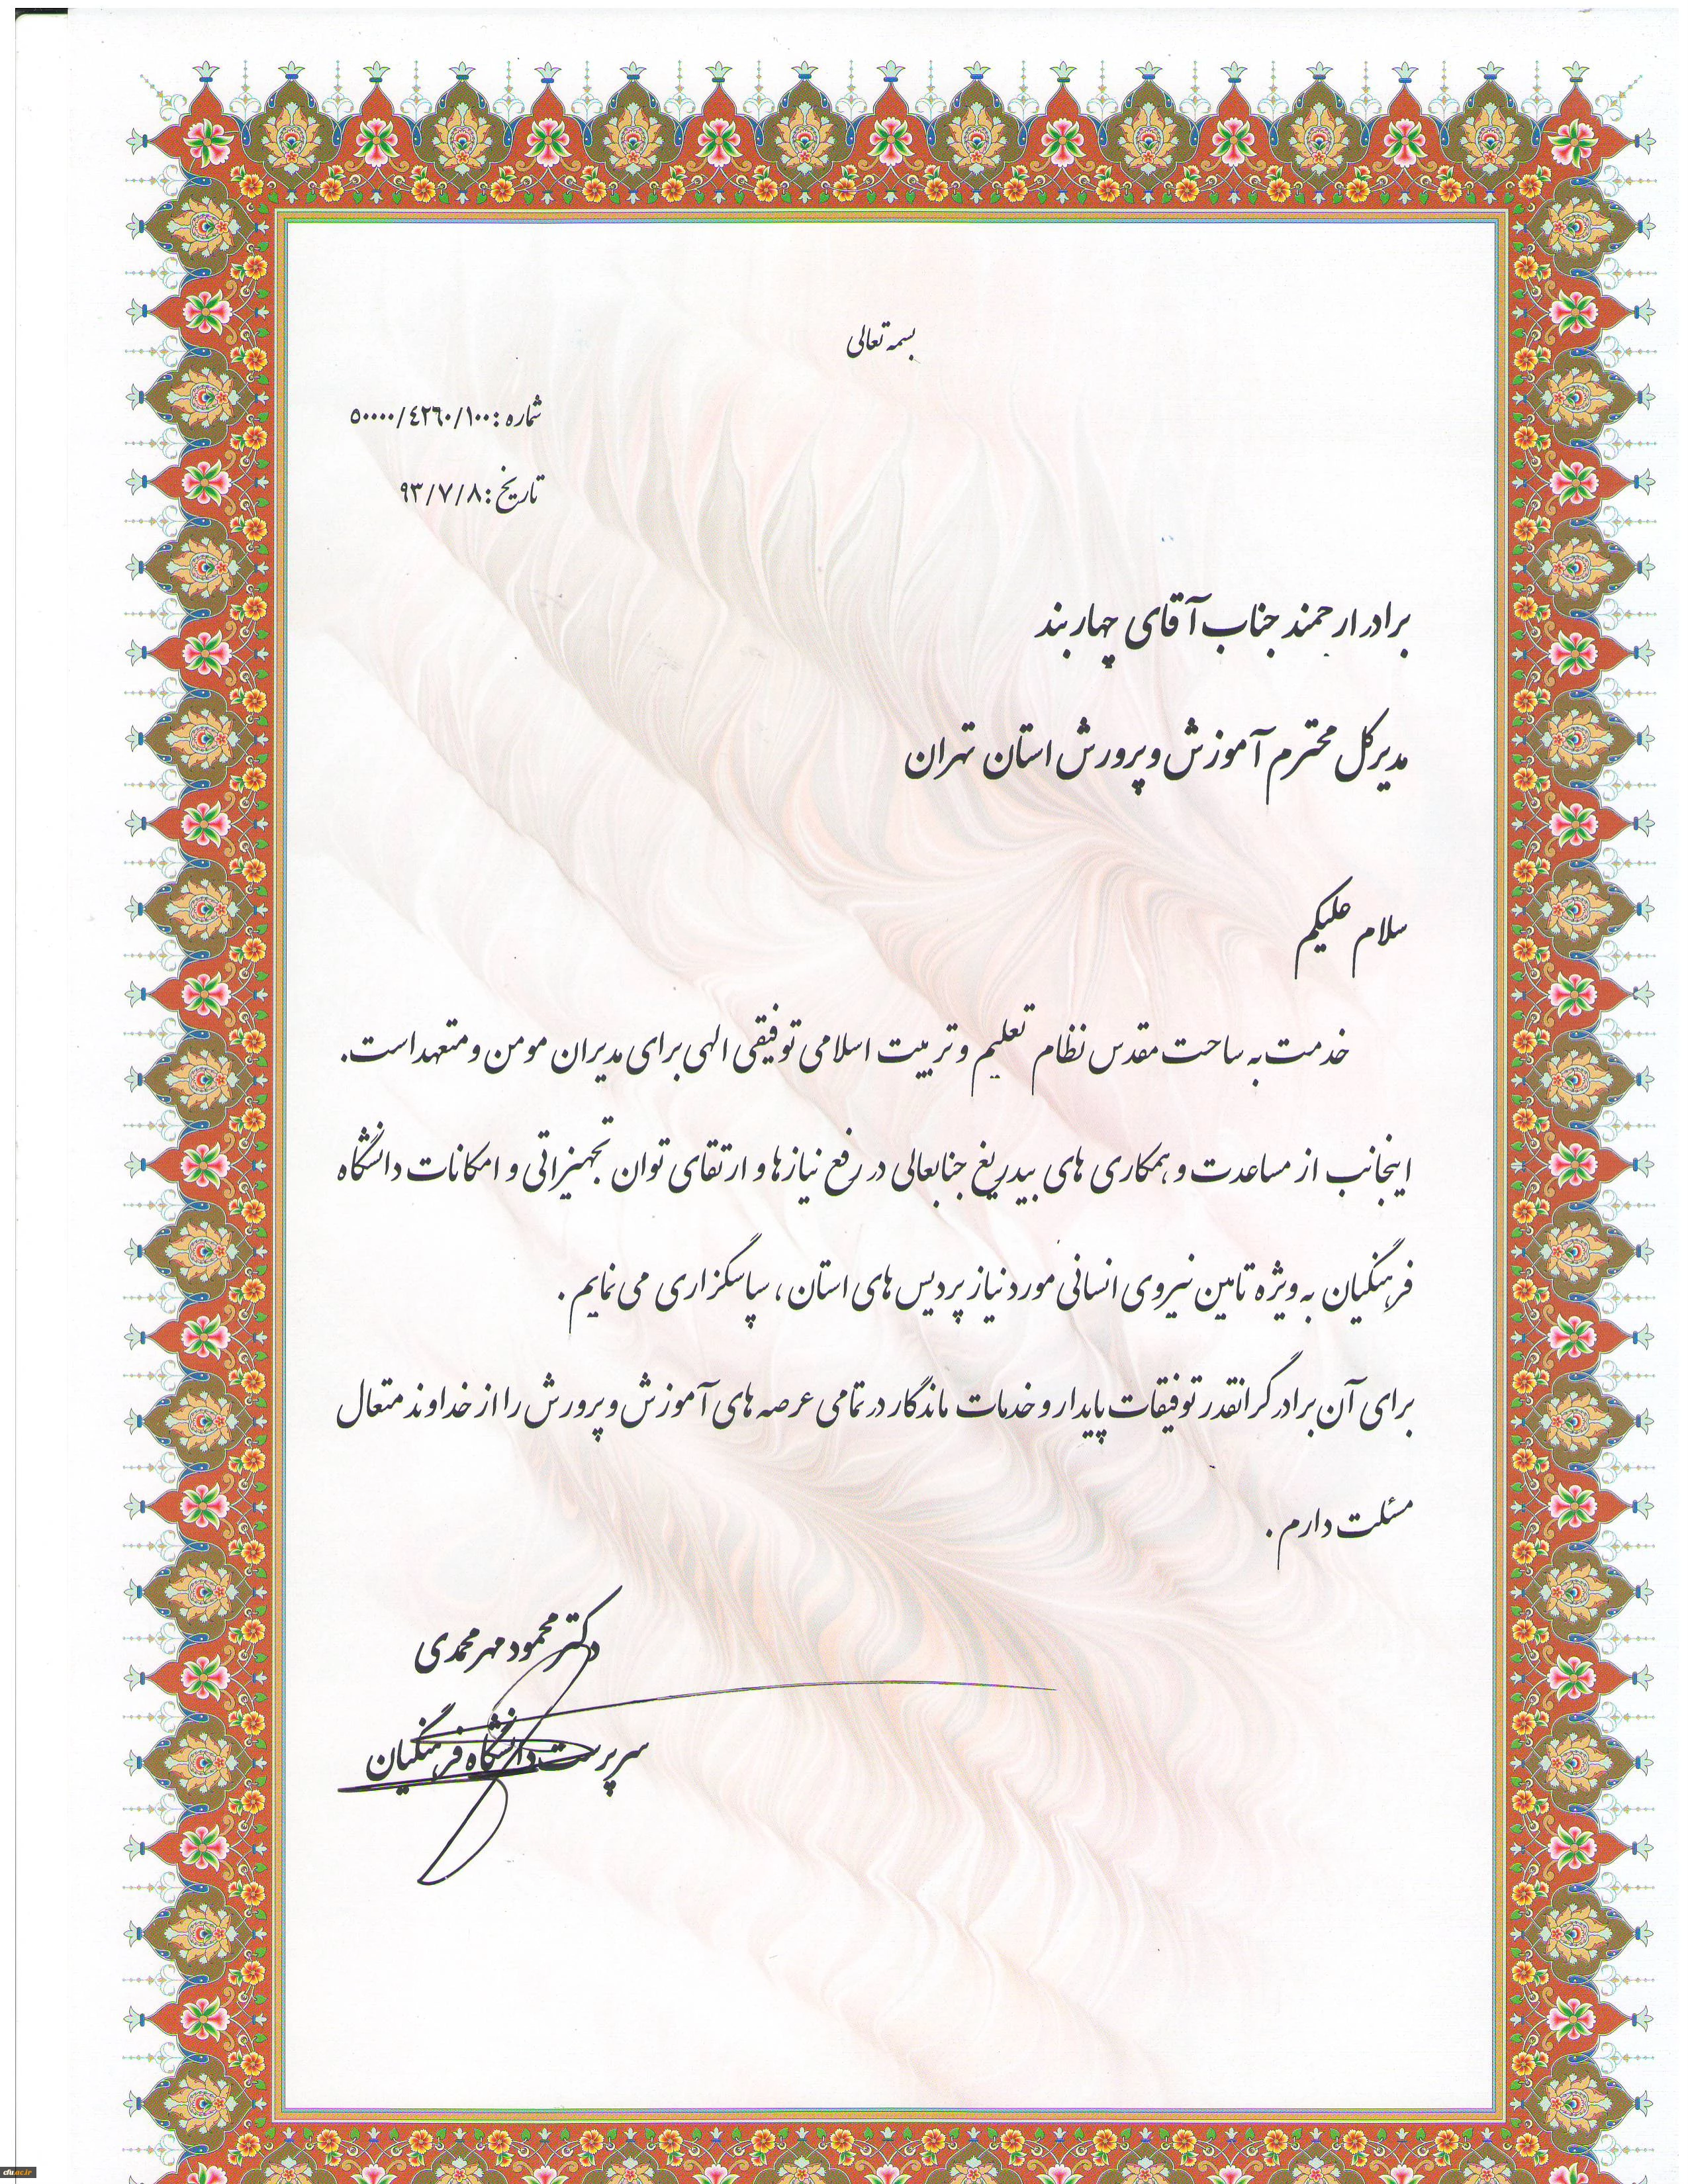 بسمه تعالی
شماره :۵۰۰۰۰/٤٢٦٠/١٠٠
تاریخ :۹۳/۷/۸
برادر ارجمند جناب آقای چهاربند
مدیرکل محترم آموزش و پرورش استان تهران
سلام علیکم
خدمت به ساحت مقدس نظام تعلیم و تربیت اسلامی توفیقی الهی برای مدیران مومن و متعهد است.
اینجانب از مساعدت و همکاری های بیدریغ جنابعالی در رفع نیازها و ارتقای توان تجهیزاتی و امکانات دانشگاه
فرهنگیان به ویژه تامین نیروی انسانی مورد نیاز پردیس های استان ، سپاسگزاری می نمایم .
برای آن برادر گرانقدر توفیقات پایدار و خدمات ماندگار در تمامی عرصه های آموزش و پرورش را از خداوند متعال
مسئلت دارم .
دکتر محمود مهرمحمدی
سرپرست دانشگاه فرهنگیان
cfu.ac.ir